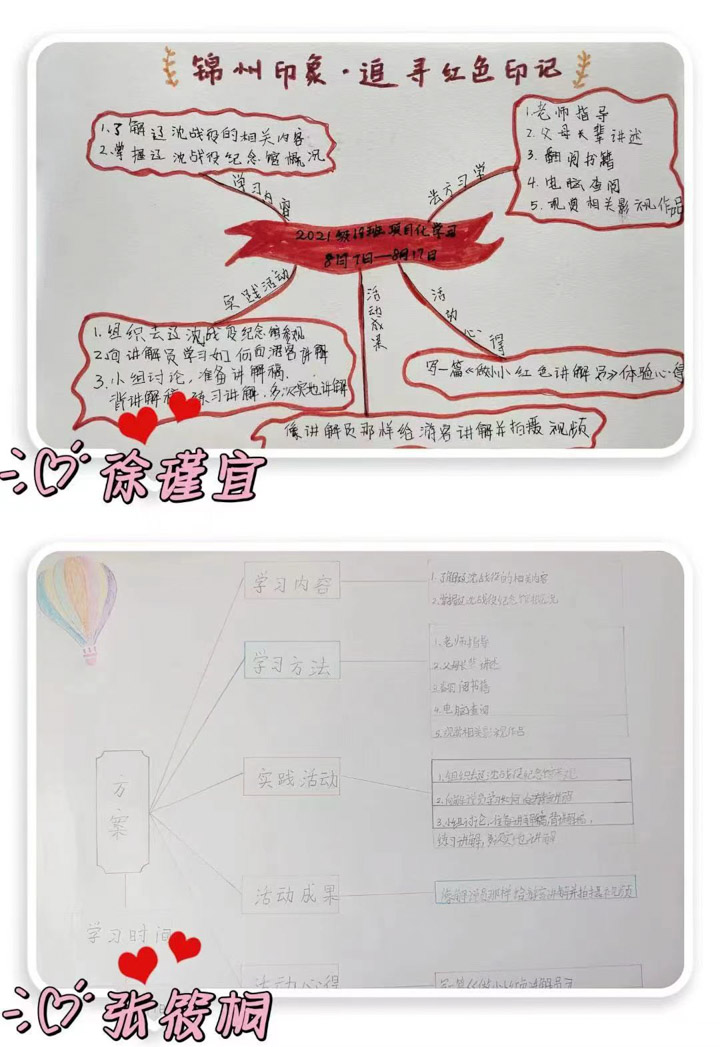 锦州印象·追寻红色印记
1.了解辽沈战役的相关内容
2.掌握辽沈战役纪念馆概况
学习内容
1.老师指导
2.父母长辈讲述
3.翻阅书籍
4.电脑查阅
5.观赏相关影视作品
学习方法
2021级16班项目化学习
8月7日—8月17日
实践活动
1.组织去辽沈战役纪念馆参观
2.向讲解员学习如何向游客讲解
3.小组讨论,准备讲解稿,
背讲解稿,练习讲解,多次实地讲解
活动成果
像讲解员那样给游客讲解并拍摄视频
活动心得
写一篇《做小小红色讲解员》体验心得
徐瑾宜
方案
学习时间
学习内容
1.了解辽沈战役的相关内容
2.掌握辽沈战役纪念馆概况
学习方法
1.老师指导
2.父母长辈讲述
3.翻阅书籍
4.电脑查阅
5.观赏相关影视作品
实践活动
1.组织去辽沈战役纪念馆参观
3.小组讨论,准备讲解稿,背讲解稿,
练习讲解,多次实地讲解
活动成果
活动心得
张筱桐